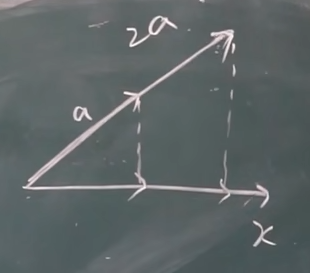 2a
a
x